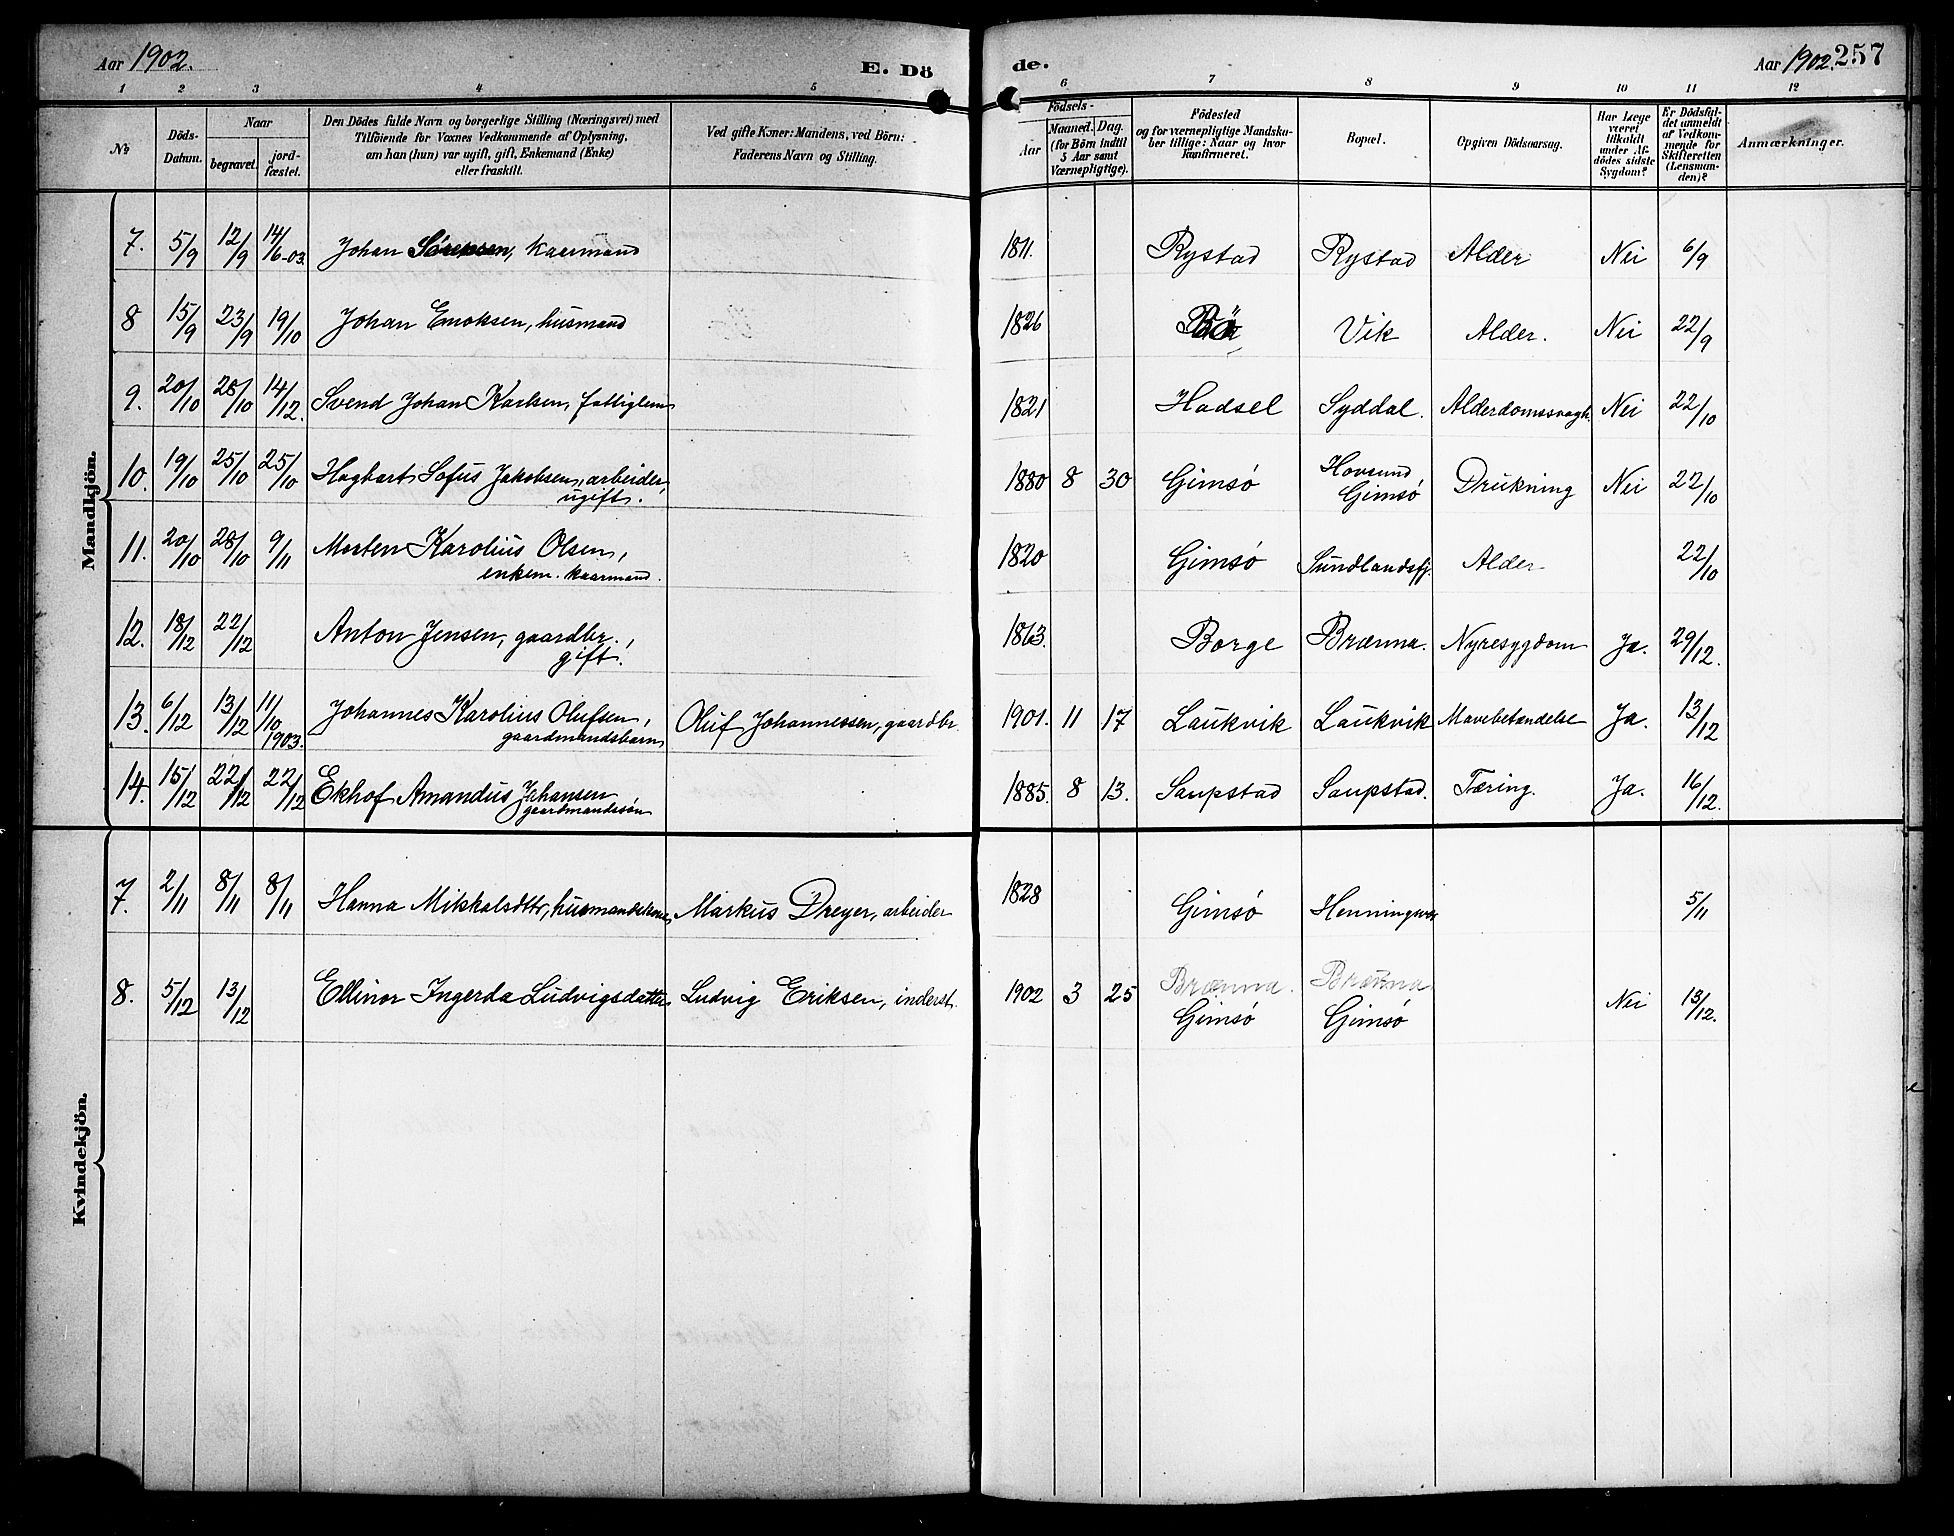 Aar 1902.
E. Dö
de.
Aar 1902.
257
1 2 3 4 5 6 7 8 9 10 11 12
No
Döds-
Datum.
Naar
begravet.
jord-
fæstet.
Den Dödes fulde Navn og borgerlige Stilling (Næringsvei) med
Tilföiende for Voxnes Vedkommende af Oplysning,
om han (hun) var ugift, gift, Enkemand (Enke)
eller fraskilt.
Ved gifte Koner: Mandens, ved Börn:
Faderens Navn og Stilling.
Födsels-
Aar
Maaned.
Dag.
(for Börn indtil
5 Aar samt
Værnepligtige).
Födested
og for værnepligtige Mandska-
ber tillige: Naar og hvor
konfirmeret.
Bopæl.
Opgiven Dödsaarsag.
Har Læge
været
tilkaldt
under Af-
dödes sidste
Sygdom?
Er Dödsfal-
det anmeldt
af Vedkom-
mende for
Skifteretten
(Lensman-
den)?
Anmærkninger.
Mandkjön.
7. 5/9 12/9 14/6-03. Johan Sörensen, kaarmand 1811. Rystad Rystad Alder Nei 6/9
8 15/9 23/9 19/10 Johan Enoksen, husmand 1826 Bö Vik Alder. Nei 22/9
9. 20/10 28/10 14/12. Svend Johan Karlsen, fattiglem 1821 Hadsel Syddal. Alderdomssvagh. Nei 22/10
10. 19/10 25/10 25/10 Hagbart Sofus Jakobsen, arbeider, ugift. 1880 8 30 Gimsö Hovsund Gimsö Drukning Nei 22/10
11. 20/10 28/10 9/11 Morten Karolius Olsen, enkem. kaarmand. 1820 Gimsö Sundlandsfj. Alder 22/10
12. 18/12 22/12 Anton Jensen, gaardbr., gift. 1863. Borge Brænna. Nyresygdom Ja. 29/12.
13. 6/12 13/12 11/10 1903. Johannes Karolius Olufsen, gaardmandsbarn Oluf Johannessen, gaardbr. 1901. 11 17 Laukvik Laukvik Mavebetændelse Ja. 13/12
14. 15/12 22/12 22/12 Ekhof Amandus Johansen gaardmandssön 1885. 8 13. Saupstad Saupstad. Tæring. Ja. 16/12.
Kvindekjön.
7. 2/11 8/11 8/11 Hanna Mikkalsdtr, husmandskone, Markus Dreyer, arbeider 1828 Gimsö Henningsvær 5/11
8. 5/12 13/12 Ellinor Ingerda Ludvigsdatter Ludvig Eriksen, inderst. 1902 3 25 Brænna. Gimsö Brænna Gimsö Nei 13/12.